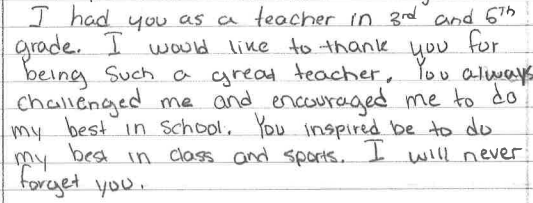 I had you as a teacher in 3rd and 6th
grade. I would like to thank you for
being such a great teacher. You always
challenged me and encouraged me to do
my best in school. You inspired be to do
my best in class and sports. I will never
forget you.